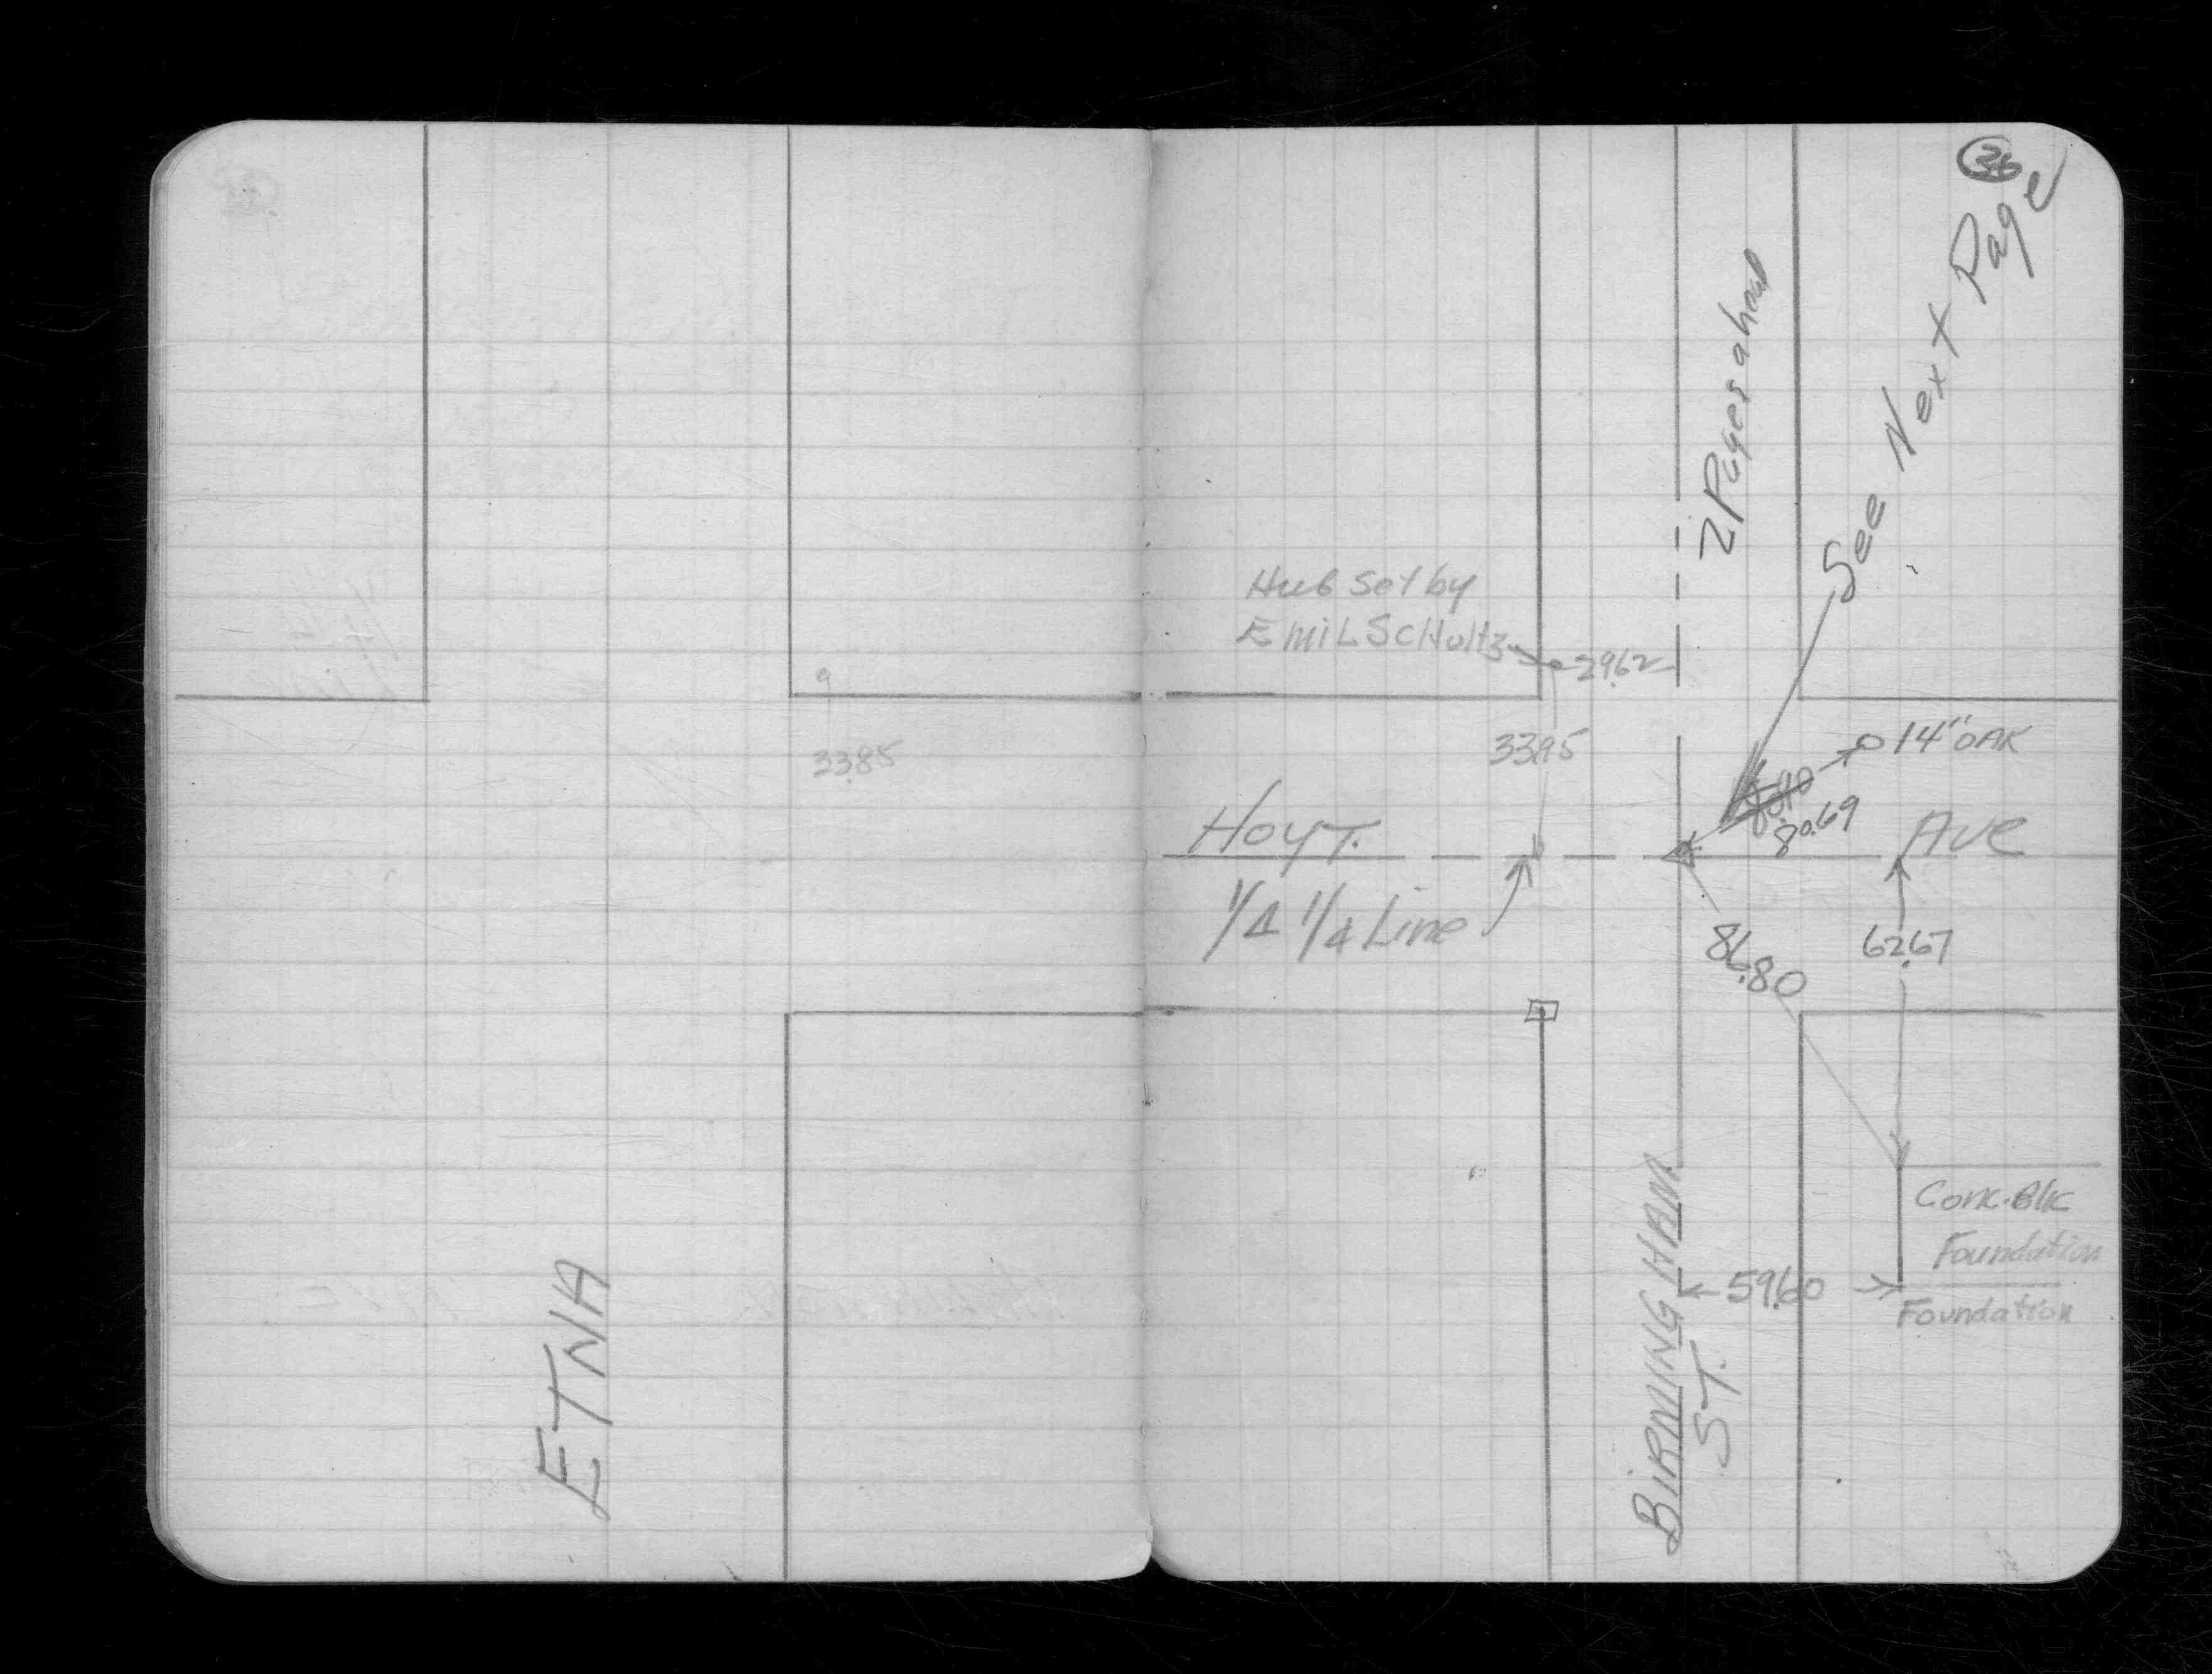 33.85
ETNA
26
See Next Page
2 Pages ahead
Hub Set by
EmiL ScHultz
29.62
33.95
14" OAK
80.69
HOYT. AVE
1/4 1/4 Line
86.80
62.67
Conc. Blk
Foundation
59.60
Foundation
BIRMINGHAM
ST.